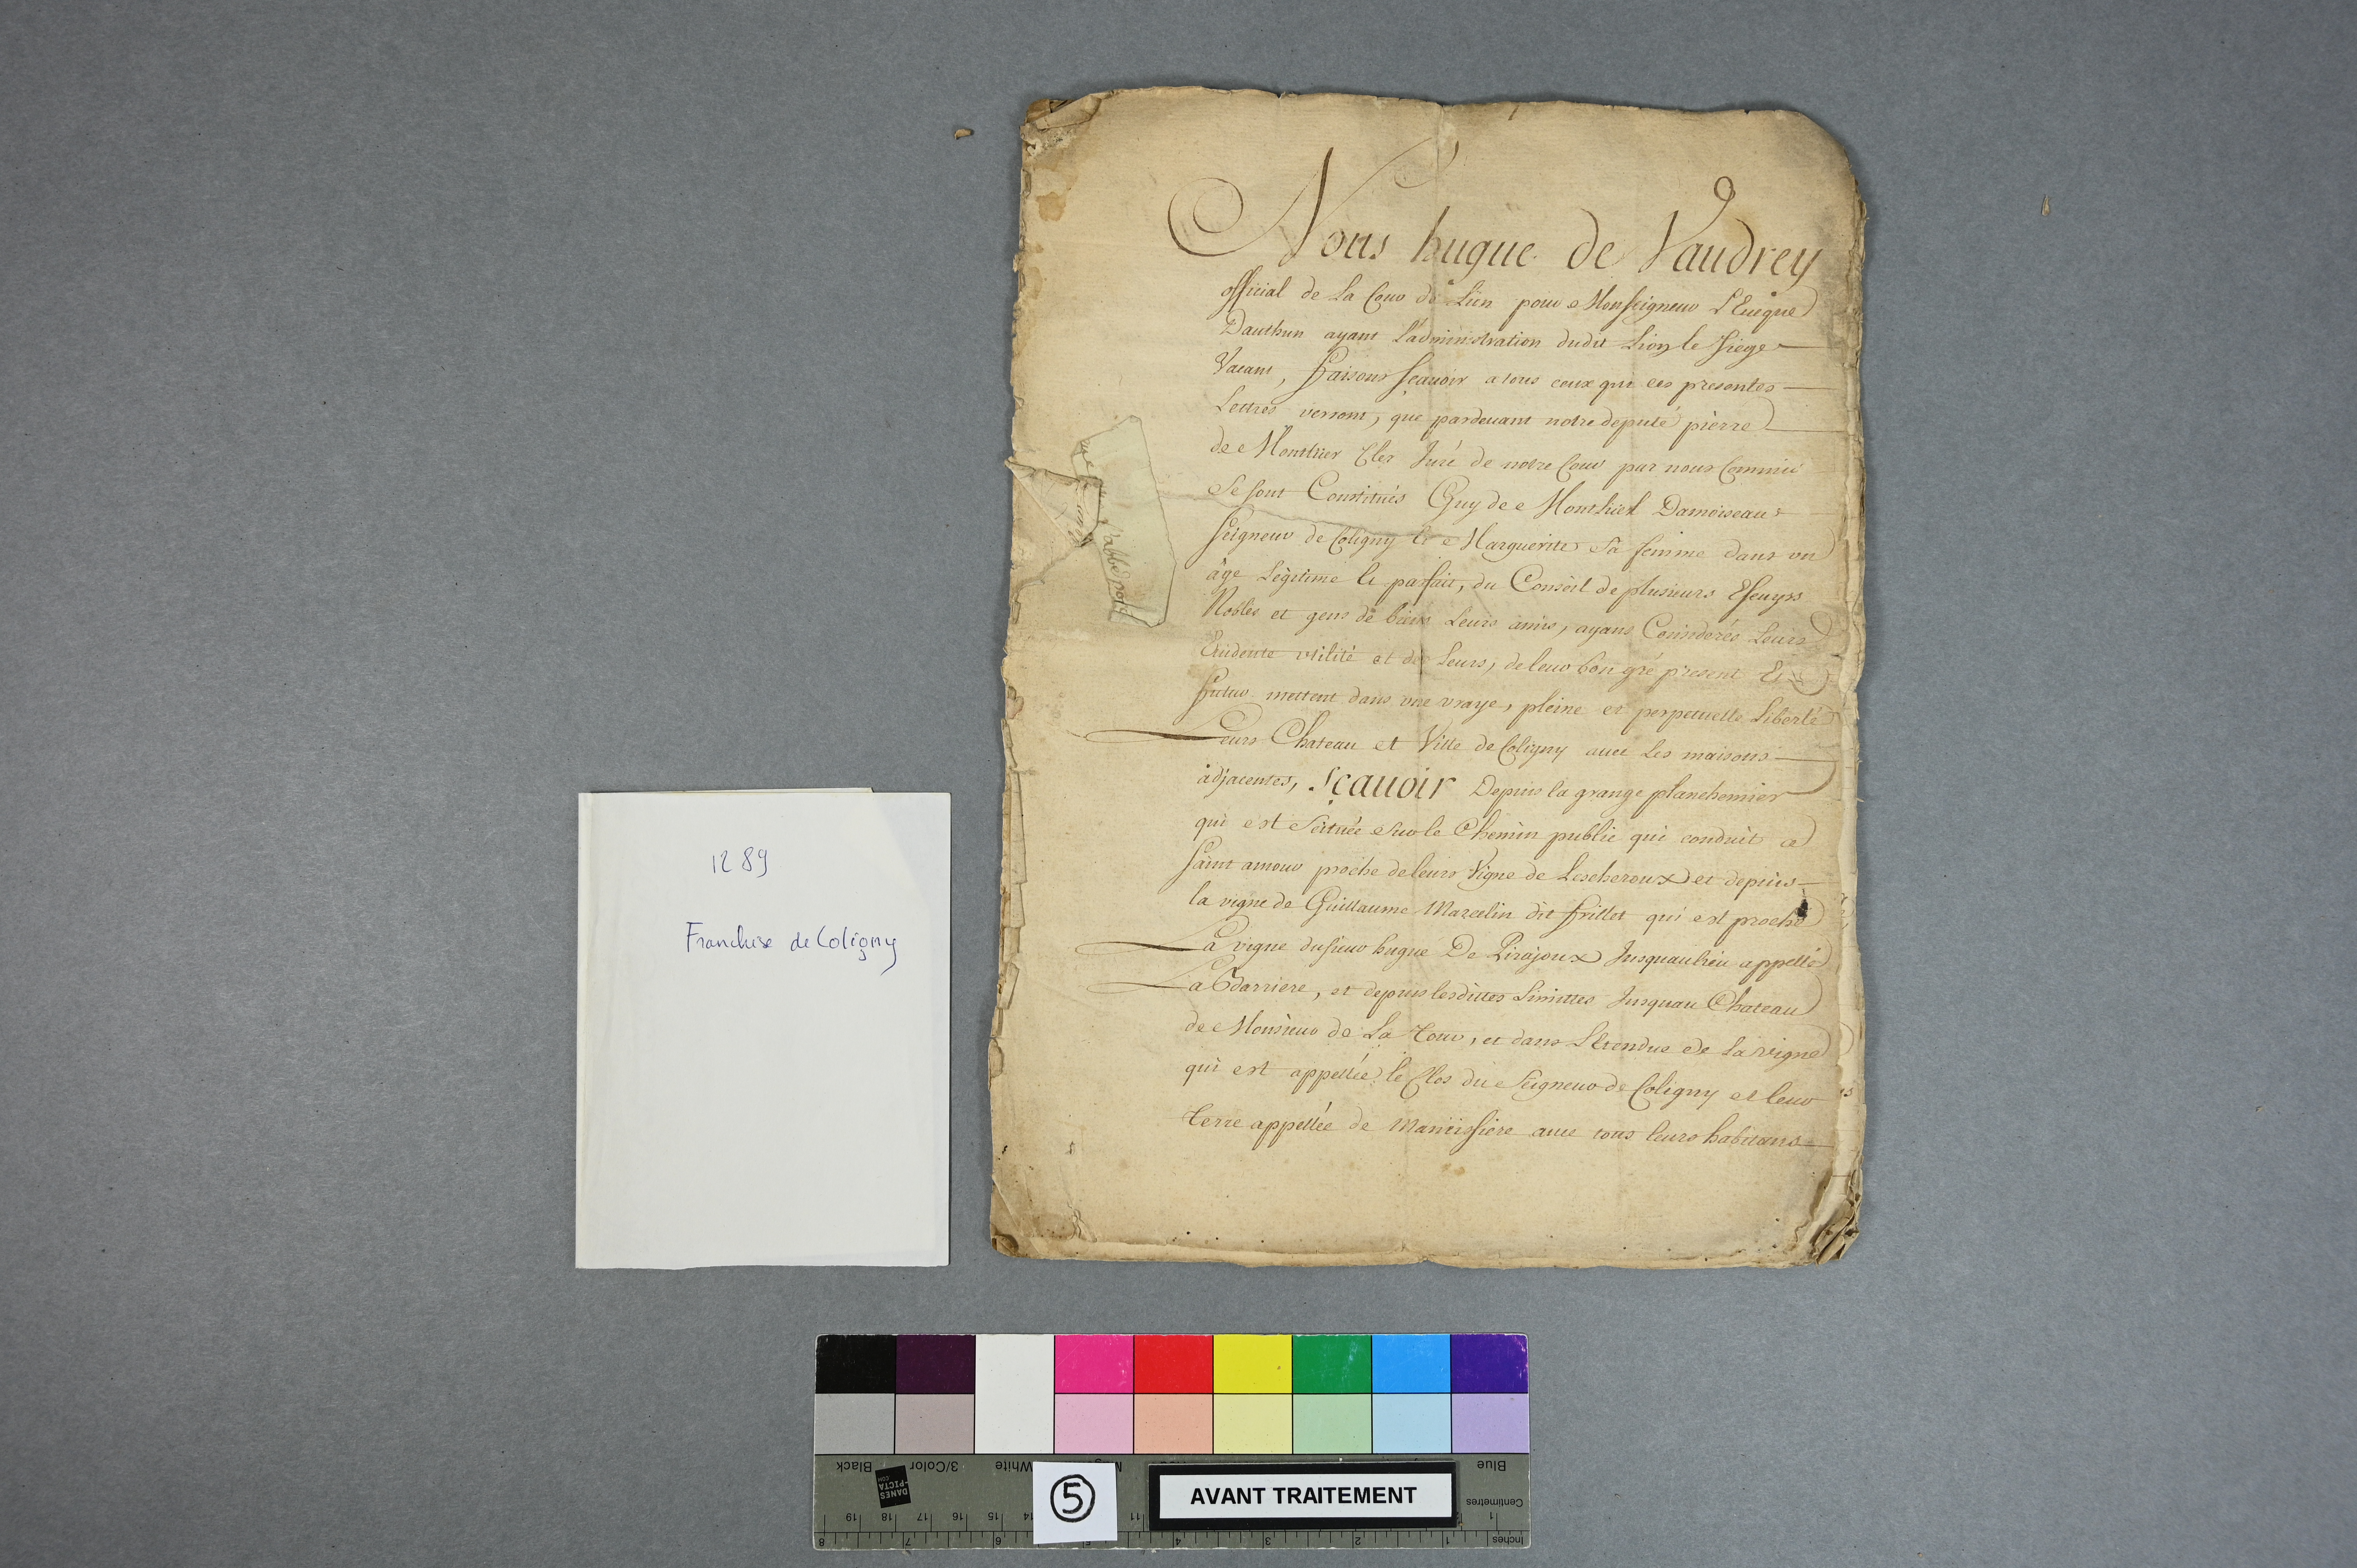 1289
Franchise de Coligny
Nous hugue de Vaudrey
official de La Cour de Lien pour Monseigneur L'Eueque
Dauthun ayant L'administration dudit Lion le siege
Vacant, faisons sçauoir a tous ceux qui ces presentes
Lettres verront, que pardeuant notre deputé pierre
de Monthier Cler Juré de notre Cour par nous Commis
Se sont Constitués Guy de Monthiel Damoiseau
seigneur de Coligny et Marguerite Sa femme dans un
âge Légitime et parfait, du Conseil de plusieurs
Nobles et gens de biens Leurs amis, ayans Considerés Leurs
Euidente utilité et des Leurs, de leur bon gré present Et
futur mettent dans une vraye, pleine et perpetuelle Liberté
Leurs Chateau et Ville de Coligny auec Les maisons
adjacentes, Sçauoir Depuis la grange planchemier
qui est Scituée Sur le Chemin public qui conduit a
saint amour proche de leurs Vigne de Lescheroux et depuis
la vigne de Guillaume Marcelin dit frillet qui est proche
La vigne du sieur hugue De Pirajoux Jusquau lieu appellé
La Barriere, et depuis lesdittes Limittes Jusquau Chateau
de Monsieur de La Tour, et dans L'Etendue de La vigne
qui est appellée le Clos du Seigneur de Coligny et leur
terre appellée de auec tous leurs habitans
l'abbé
AVANT TRAITEMENT
5
Black
3/Color
White
Blue
DANES
-PICTA
.COM
Centimetres
19 18 17 16 15 14 11 1
8 7 6 5 4 3 2 1
Inches